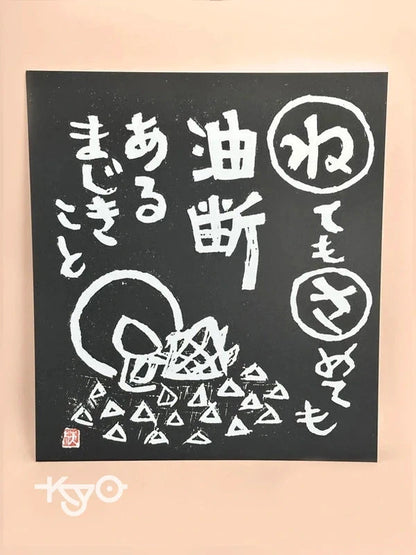 ねてもさめても
油断
ある
まじき
こと
KyO